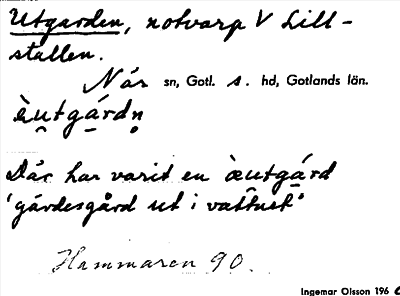 Utgarden, notvarp V Lill-
stallen.
När sn, Gotl. s. hd, Gotlands län.
èutgárdn̥
Där har varit en èutgárd
'gärdesgård ut i vattnet'
Hammaren 90.
Ingemar Olsson 196